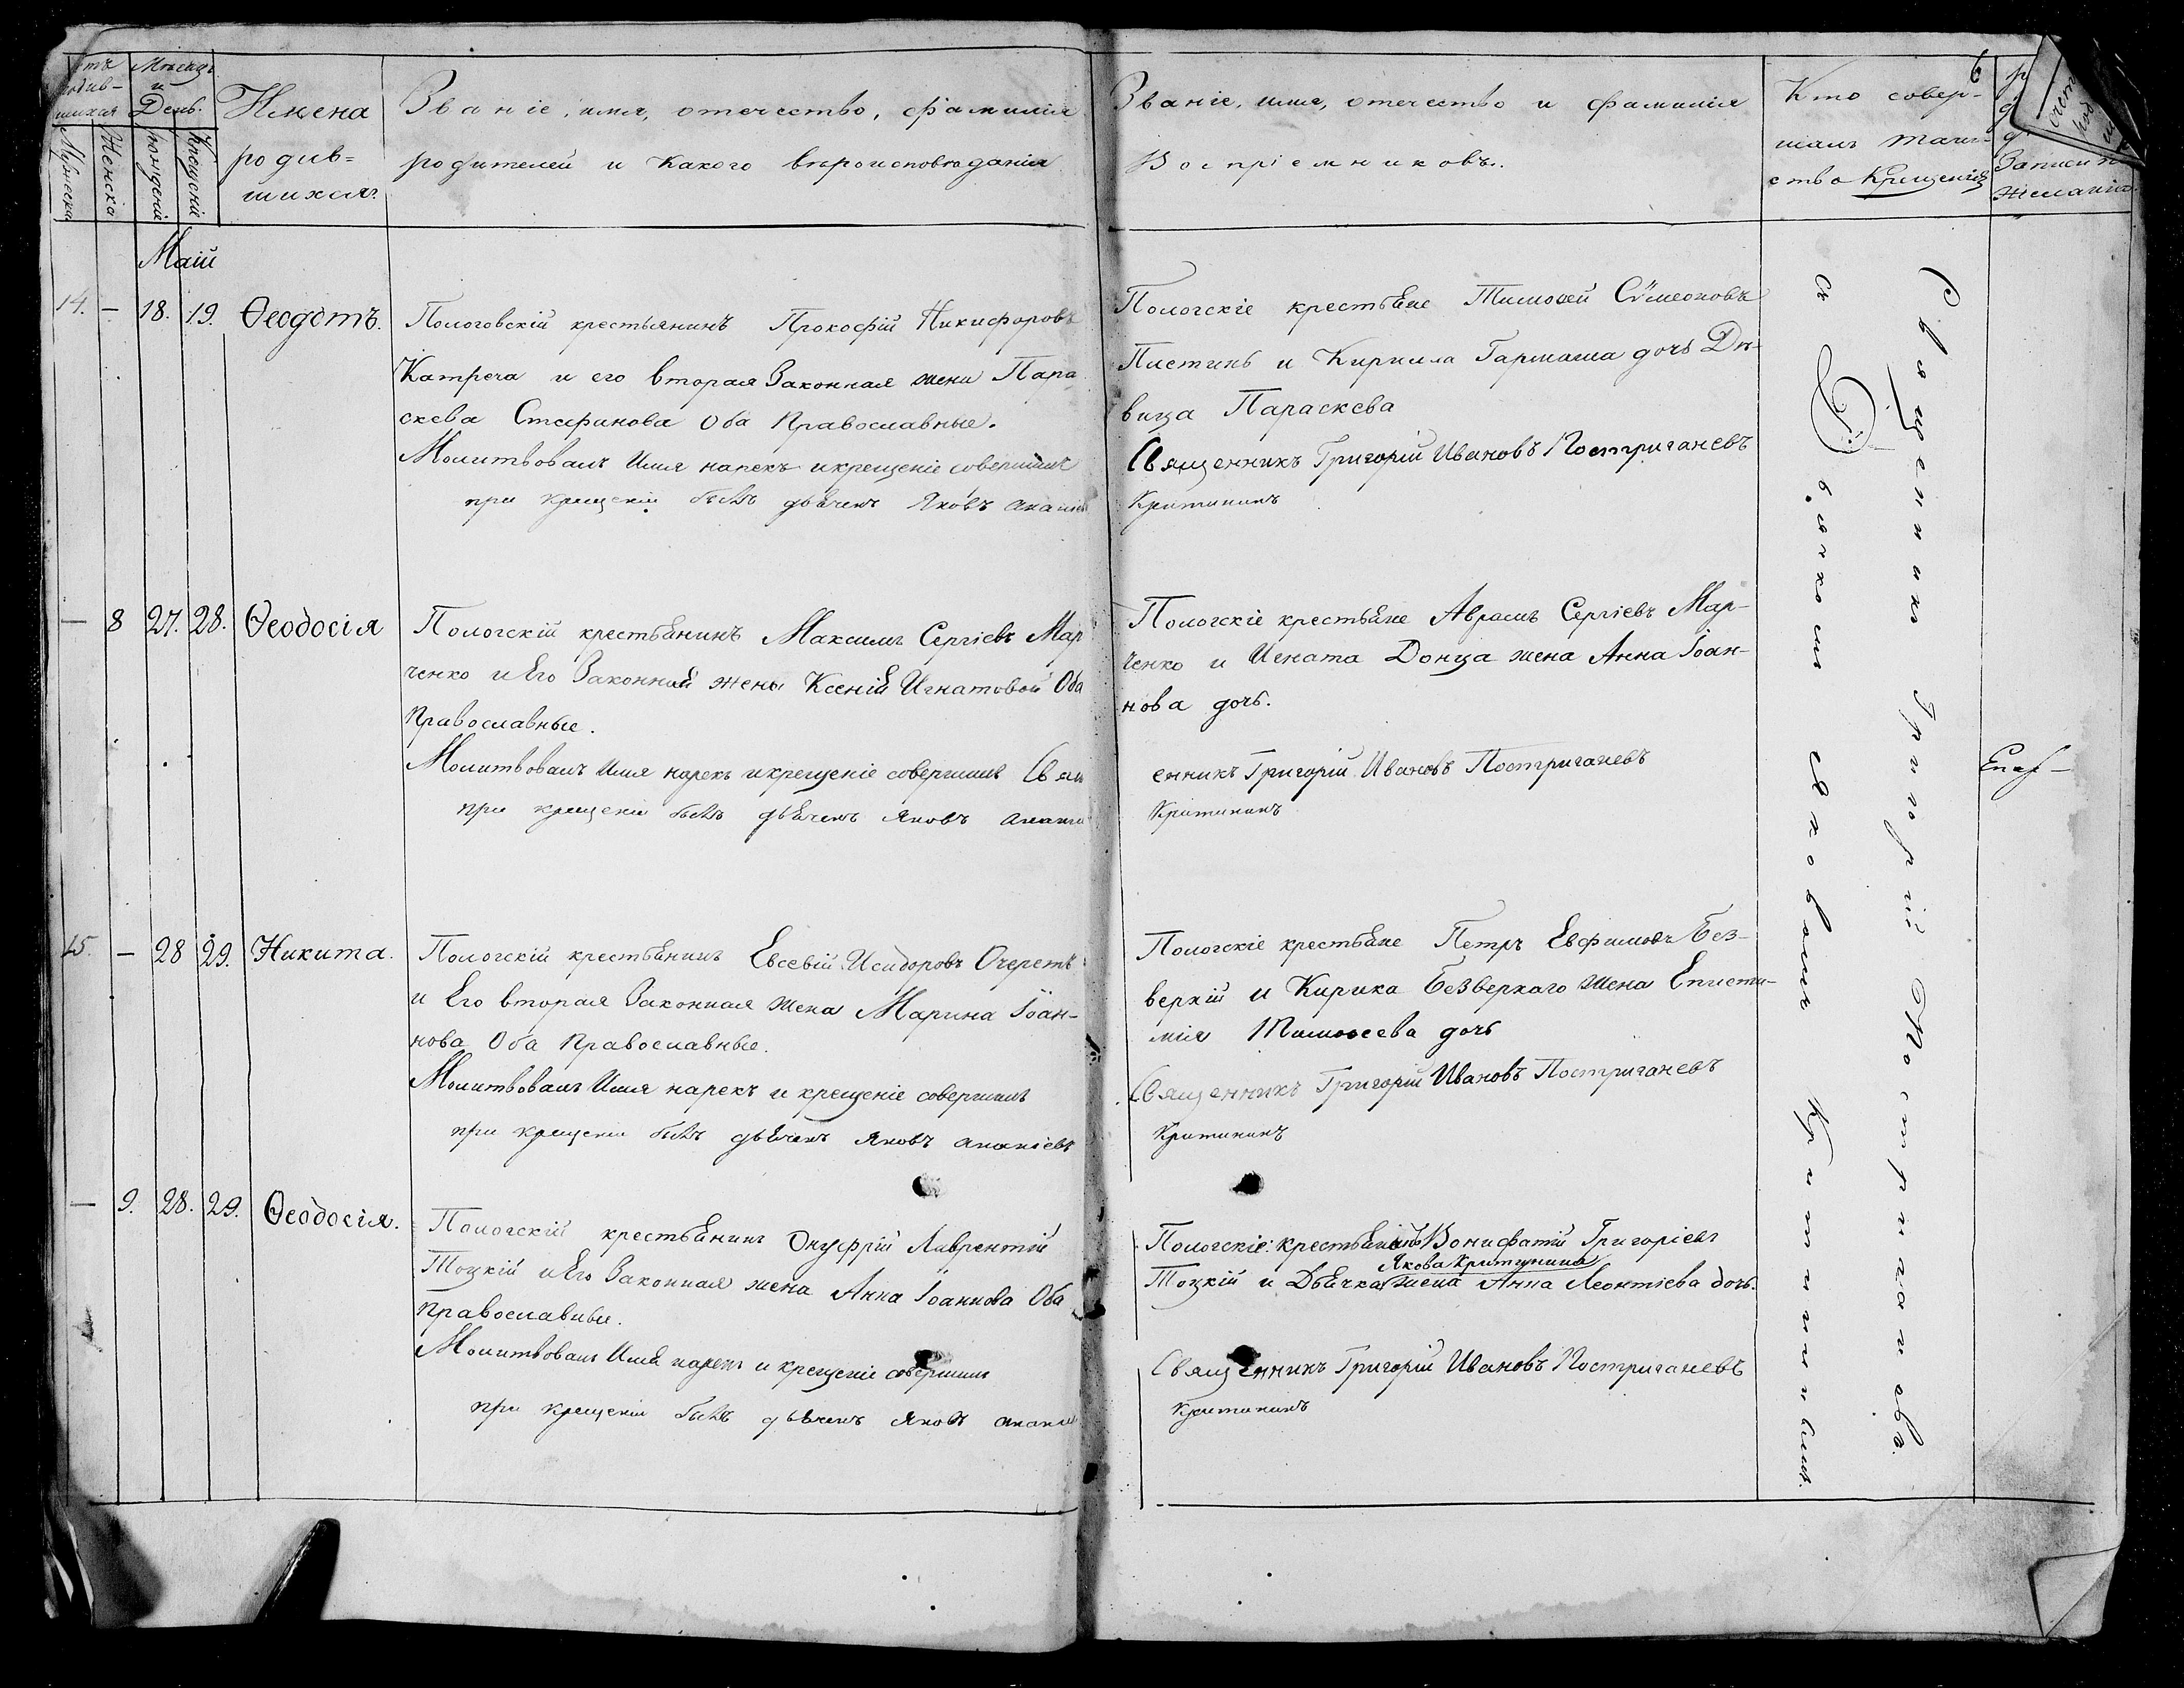 Мѣсяцъ
и
День.
Мужеска
Женска
рожденія
Крещенія
Имена
родив=
шихся.
Званіе, имя, отечество, фамилія
родителей и какого вѣроисповѣданія
Званіе, имя, отечество и фамилія
Воспріемниковъ.
Кто совер-
шалъ таин-
ство Крещенія
6
Маій
14. — 18. 19. Ѳеодотъ.
Пологовскій крестьянинъ Прокофій Никифоровъ
Катреча и его вторая Законная жена Пара
скева Стефанова Оба Православные.
Молитвовалъ Имя нарекъ и крещеніе совершилъ
при крещеніи былъ дьячекъ Яковъ Ананіевъ
Пологскіе крестьяне Тимоѳей Сѵмеоновъ
Пистинъ и Кирилла Гармаша дочь Дѣ-
вица Параскева
Священникъ Григорій Ивановъ Постриганевъ
Критининъ
— 8 27. 28. Ѳеодосія
Пологскій крестьянинъ Максимъ Сергіевъ Мар
ченко и Его Законной жены Ксеній Игнатовой Оба
Православные.
Молитвовалъ Имя нарекъ и крещеніе совершилъ Свящ
при крещеніи былъ дьячекъ Яковъ Анани
Пологскіе крестьяне Аврамъ Сергіевъ Мар-
ченко и Игната Донца жена Анна Іоан-
нова дочь.
енникъ Григорій Ивановъ Постриганевъ
Критининъ
15. — 28 29. Никита.
Пологскій крестьянинъ Евсевій Исидоровъ Очеретъ
и Его вторая Законная жена Марина Іоан-
нова Оба Православные.
Молитвовалъ Имя нарекъ и крещеніе совершилъ
при крещеніи былъ дьячекъ Яковъ Ананіевъ
Пологскіе крестьяне Петръ Евфимовъ Без-
веркій и Кирика Безверкаго жена Еписти-
мія Тимоѳеева дочь
Священникъ Григорій Ивановъ Постриганевъ
Критининъ
— 9. 28. 29. Ѳеодосія.
Пологскій крестьянинъ Онуфрій Лаврентій
Тоцкій и Его Законная жена Анна Іоаннова Оба
Православные.
Молитвовалъ Имя нарекъ и крещеніе совершилъ
при крещеніи былъ дьячекъ Яковъ Анани
Пологскіе: крестьянинъ Вонифатій Григоріевъ
Якова Критинина
Тоцкій и Дьячка жена Анна Леонтіева дочь.
Священникъ Григорій Ивановъ Постриганевъ
Критининъ
Священникъ Григорій Постриганевъ.
съ Дьячкомъ Яковомъ Критининымъ.